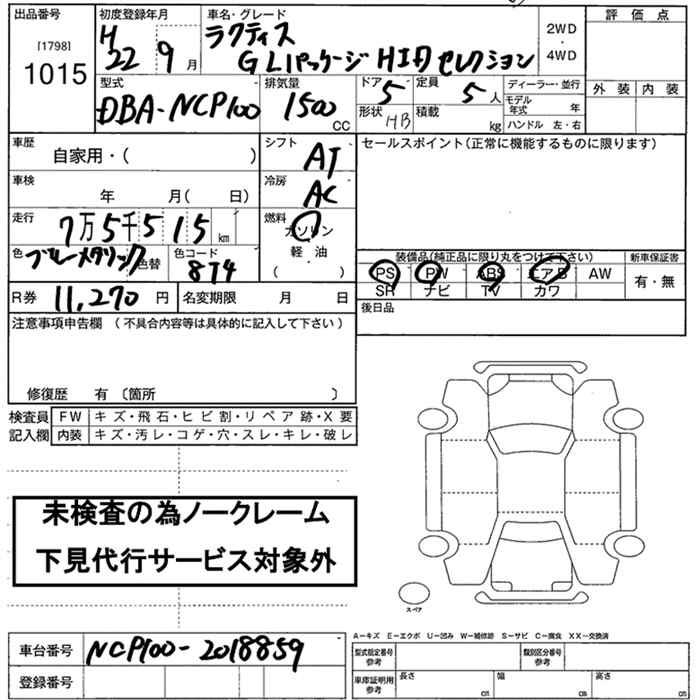 出品番号
[1798]
1015
初度登録年月
H
22 9 月
車名・グレード
ラクティス
G Lパッケージ HID セレクション
2WD
・
4WD
評価点
外装 内装
型式
DBA-NCP100
排気量
1500
CC
ドア 5
形状 HB
定員 5 人
積載 kg
ディーラー・並行
モデル年式 年
ハンドル 左・右
車歴
自家用・( )
シフト
AT
セールスポイント(正常に機能するものに限ります)
車検
年 月( 日)
冷房
AC
走行
7万5千515 km
燃料
ガソリン
軽・油
( )
色
ブルーメタリック
色替
色コード
8T4
装備品(純正品に限り丸をつけて下さい)
PS PW ABS エアB AW
SR ナビ TV カワ
新車保証書
有・無
R券 11,270 円
名変期限 月 日
後日品
注意事項申告欄 (不具合内容等は具体的に記入して下さい)
修復歴 有 〔箇所 〕
検査員
記入欄
FW キズ・飛石・ヒビ割・リペア跡・X要
内装 キズ・汚レ・コゲ・穴・スレ・キレ・破レ
未検査の為ノークレーム
下見代行サービス対象外
スペア
A−キズ E−エクボ U−凹み W−補修跡 S−サビ C−腐食 XX−交換済
車台番号 NCP100-2018859
登録番号
型式指定番号
参考
類別区分番号
参考
車庫証明用
参考
長さ cm
幅 cm
高さ cm